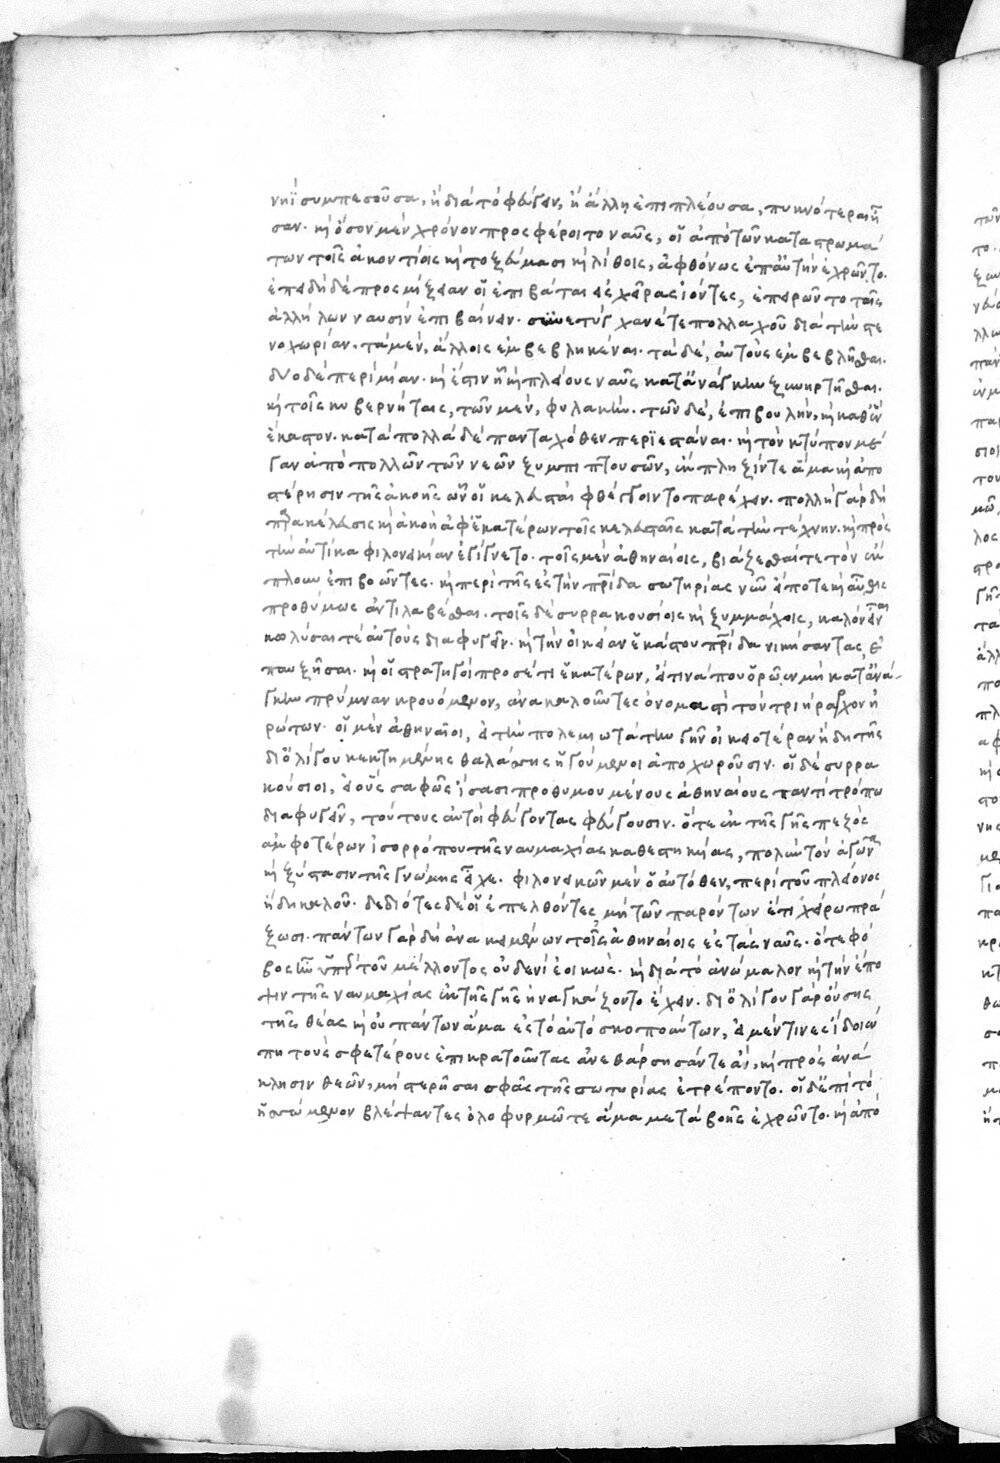 νηῒ συμπεσοῦσα, ἢ διὰ τὸ φεύγειν, ἢ ἄλλῃ ἐπιπλέουσα, πυκνότεραι ἦ
σαν. καὶ ὅσον μὲν χρόνον προσφέροιτο ναῦς, οἱ ἀπὸ τῶν καταστρωμά
των τοῖς ἀκοντίοις καὶ τοξεύμασι καὶ λίθοις, ἀφθόνως ἐπ' αὐτὴν ἐχρῶντο.
ἐπειδὴ δὲ προσμίξειαν οἱ ἐπιβάται εἰς χεῖρας ἰόντες, ἐπειρῶντο ταῖς
ἀλλήλων ναυσὶν ἐπιβαίνειν. συνετύγχανέ τε πολλαχοῦ διὰ τὴν στε
νοχωρίαν. τὰ μὲν, ἄλλοις ἐμβεβληκέναι. τὰ δὲ, αὐτοὺς ἐμβεβλῆσθαι.
δύο δὲ περὶ μίαν. καὶ ἔστιν ᾗ καὶ πλείους ναῦς κατ' ἀνάγκην ξυνηρτῆσθαι.
καὶ τοῖς κυβερνήταις, τῶν μὲν, φυλακὴν. τῶν δὲ, ἐπιβουλὴν, μὴ καθ' ἓν
ἕκαστον. κατὰ πολλὰ δὲ πανταχόθεν περιεστάναι. καὶ τὸν κτύπον μέ
γαν ἀπὸ πολλῶν τῶν νεῶν ξυμπιπτουσῶν, ἔκπληξίν τε ἅμα καὶ ἀπο
στέρησιν τῆς ἀκοῆς ὧν οἱ κελευσταὶ φθέγγοιντο παρέχειν. πολλὴ γὰρ δὴ
παρακέλευσις καὶ ἀκοὴ ἀφ' ἑκατέρων τοῖς κελευσταῖς κατὰ τὴν τέχνην. καὶ πρὸς
τὴν αὐτίκα φιλονεικίαν ἐγίγνετο. τοῖς μὲν ἀθηναίοις, βιάζεσθαί τε τὸν ἔκ
πλουν ἐπιβοῶντες. καὶ περὶ τῆς ἐς τὴν πατρίδα σωτηρίας νῦν εἴ ποτε καὶ αὖθις
προθύμως ἀντιλαβέσθαι. τοῖς δὲ συρρακουσίοις καὶ ξυμμάχοις, καλὸν εἶναι
κωλῦσαί τε αὐτοὺς διαφυγεῖν. καὶ τὴν οἰκείαν ἑκάστου πατρίδα νικήσαντας, ἐ
παυξῆσαι. καὶ οἱ στρατηγοὶ προσέτι ἑκατέρων, εἴ τινά που ὁρῷεν μὴ κατ' ἀνά
γκην πρύμναν κρουόμενον, ἀνακαλοῦντες ὀνομαστὶ τὸν τριήραρχον ἠ
ρώτων. οἱ μὲν ἀθηναῖοι, εἰ τὴν πολεμιωτάτην γῆν οἰκειοτέραν ἤδη τῆς
δι' ὀλίγου κεκτημένης θαλάσσης ἡγούμενοι ἀποχωροῦσιν. οἱ δὲ συρρα
κούσιοι, εἰ οὓς σαφῶς ἴσασι προθυμουμένους ἀθηναίους παντὶ τρόπῳ
διαφυγεῖν, τούτους αὐτοὶ φεύγοντας φεύγουσιν. ὅ τε ἐκ τῆς γῆς πεζὸς
ἀμφοτέρων ἰσορρόπου τῆς ναυμαχίας καθεστηκυίας, πολὺν τὸν ἀγῶνα
καὶ ξύστασιν τῆς γνώμης εἶχε. φιλονεικῶν μὲν ὁ αὐτόθεν, περὶ τοῦ πλείονος
ἤδη καλοῦ. δεδιότες δὲ οἱ ἐπελθόντες, μὴ τῶν παρόντων ἔτι χείρω πρά
ξωσι. πάντων γὰρ δὴ ἀνακειμένων τοῖς ἀθηναίοις ἐς τὰς ναῦς. ὅ τε φό
βος ἦν ὑπὲρ τοῦ μέλλοντος οὐδενὶ ἐοικώς. καὶ διὰ τὸ ἀνώμαλον καὶ τὴν ἔπο
ψιν τῆς ναυμαχίας ἐκ τῆς γῆς ἠναγκάζοντο ἔχειν. δι' ὀλίγου γὰρ οὔσης
τῆς θέας καὶ οὐ πάντων ἅμα ἐς τὸ αὐτὸ σκοπούντων, εἰ μέν τινες ἴδοιέν
πῃ τοὺς σφετέρους ἐπικρατοῦντας ἀνεθάρσησάν τε ἂν, καὶ πρὸς ἀνά
κλησιν θεῶν, μὴ στερῆσαι σφᾶς τῆς σωτηρίας ἐτρέποντο. οἱ δ' ἐπὶ τὸ
ἡσσώμενον βλέψαντες ὀλοφυρμῷ τε ἅμα μετὰ βοῆς ἐχρῶντο. καὶ ἀπὸ